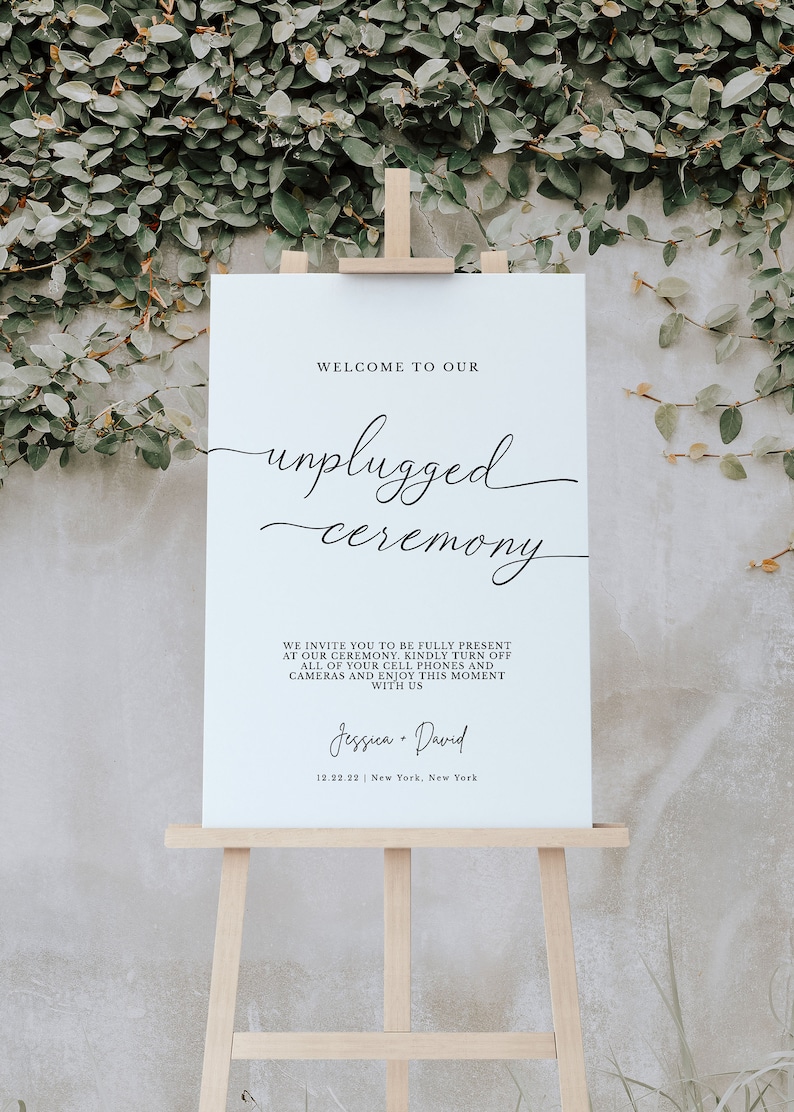 WELCOME TO OUR
unplugged
ceremony
WE INVITE YOU TO BE FULLY PRESENT
AT OUR CEREMONY. KINDLY TURN OFF
ALL OF YOUR CELL PHONES AND
CAMERAS AND ENJOY THIS MOMENT
WITH US
Jessica + David
12.22.22 | New York, New York